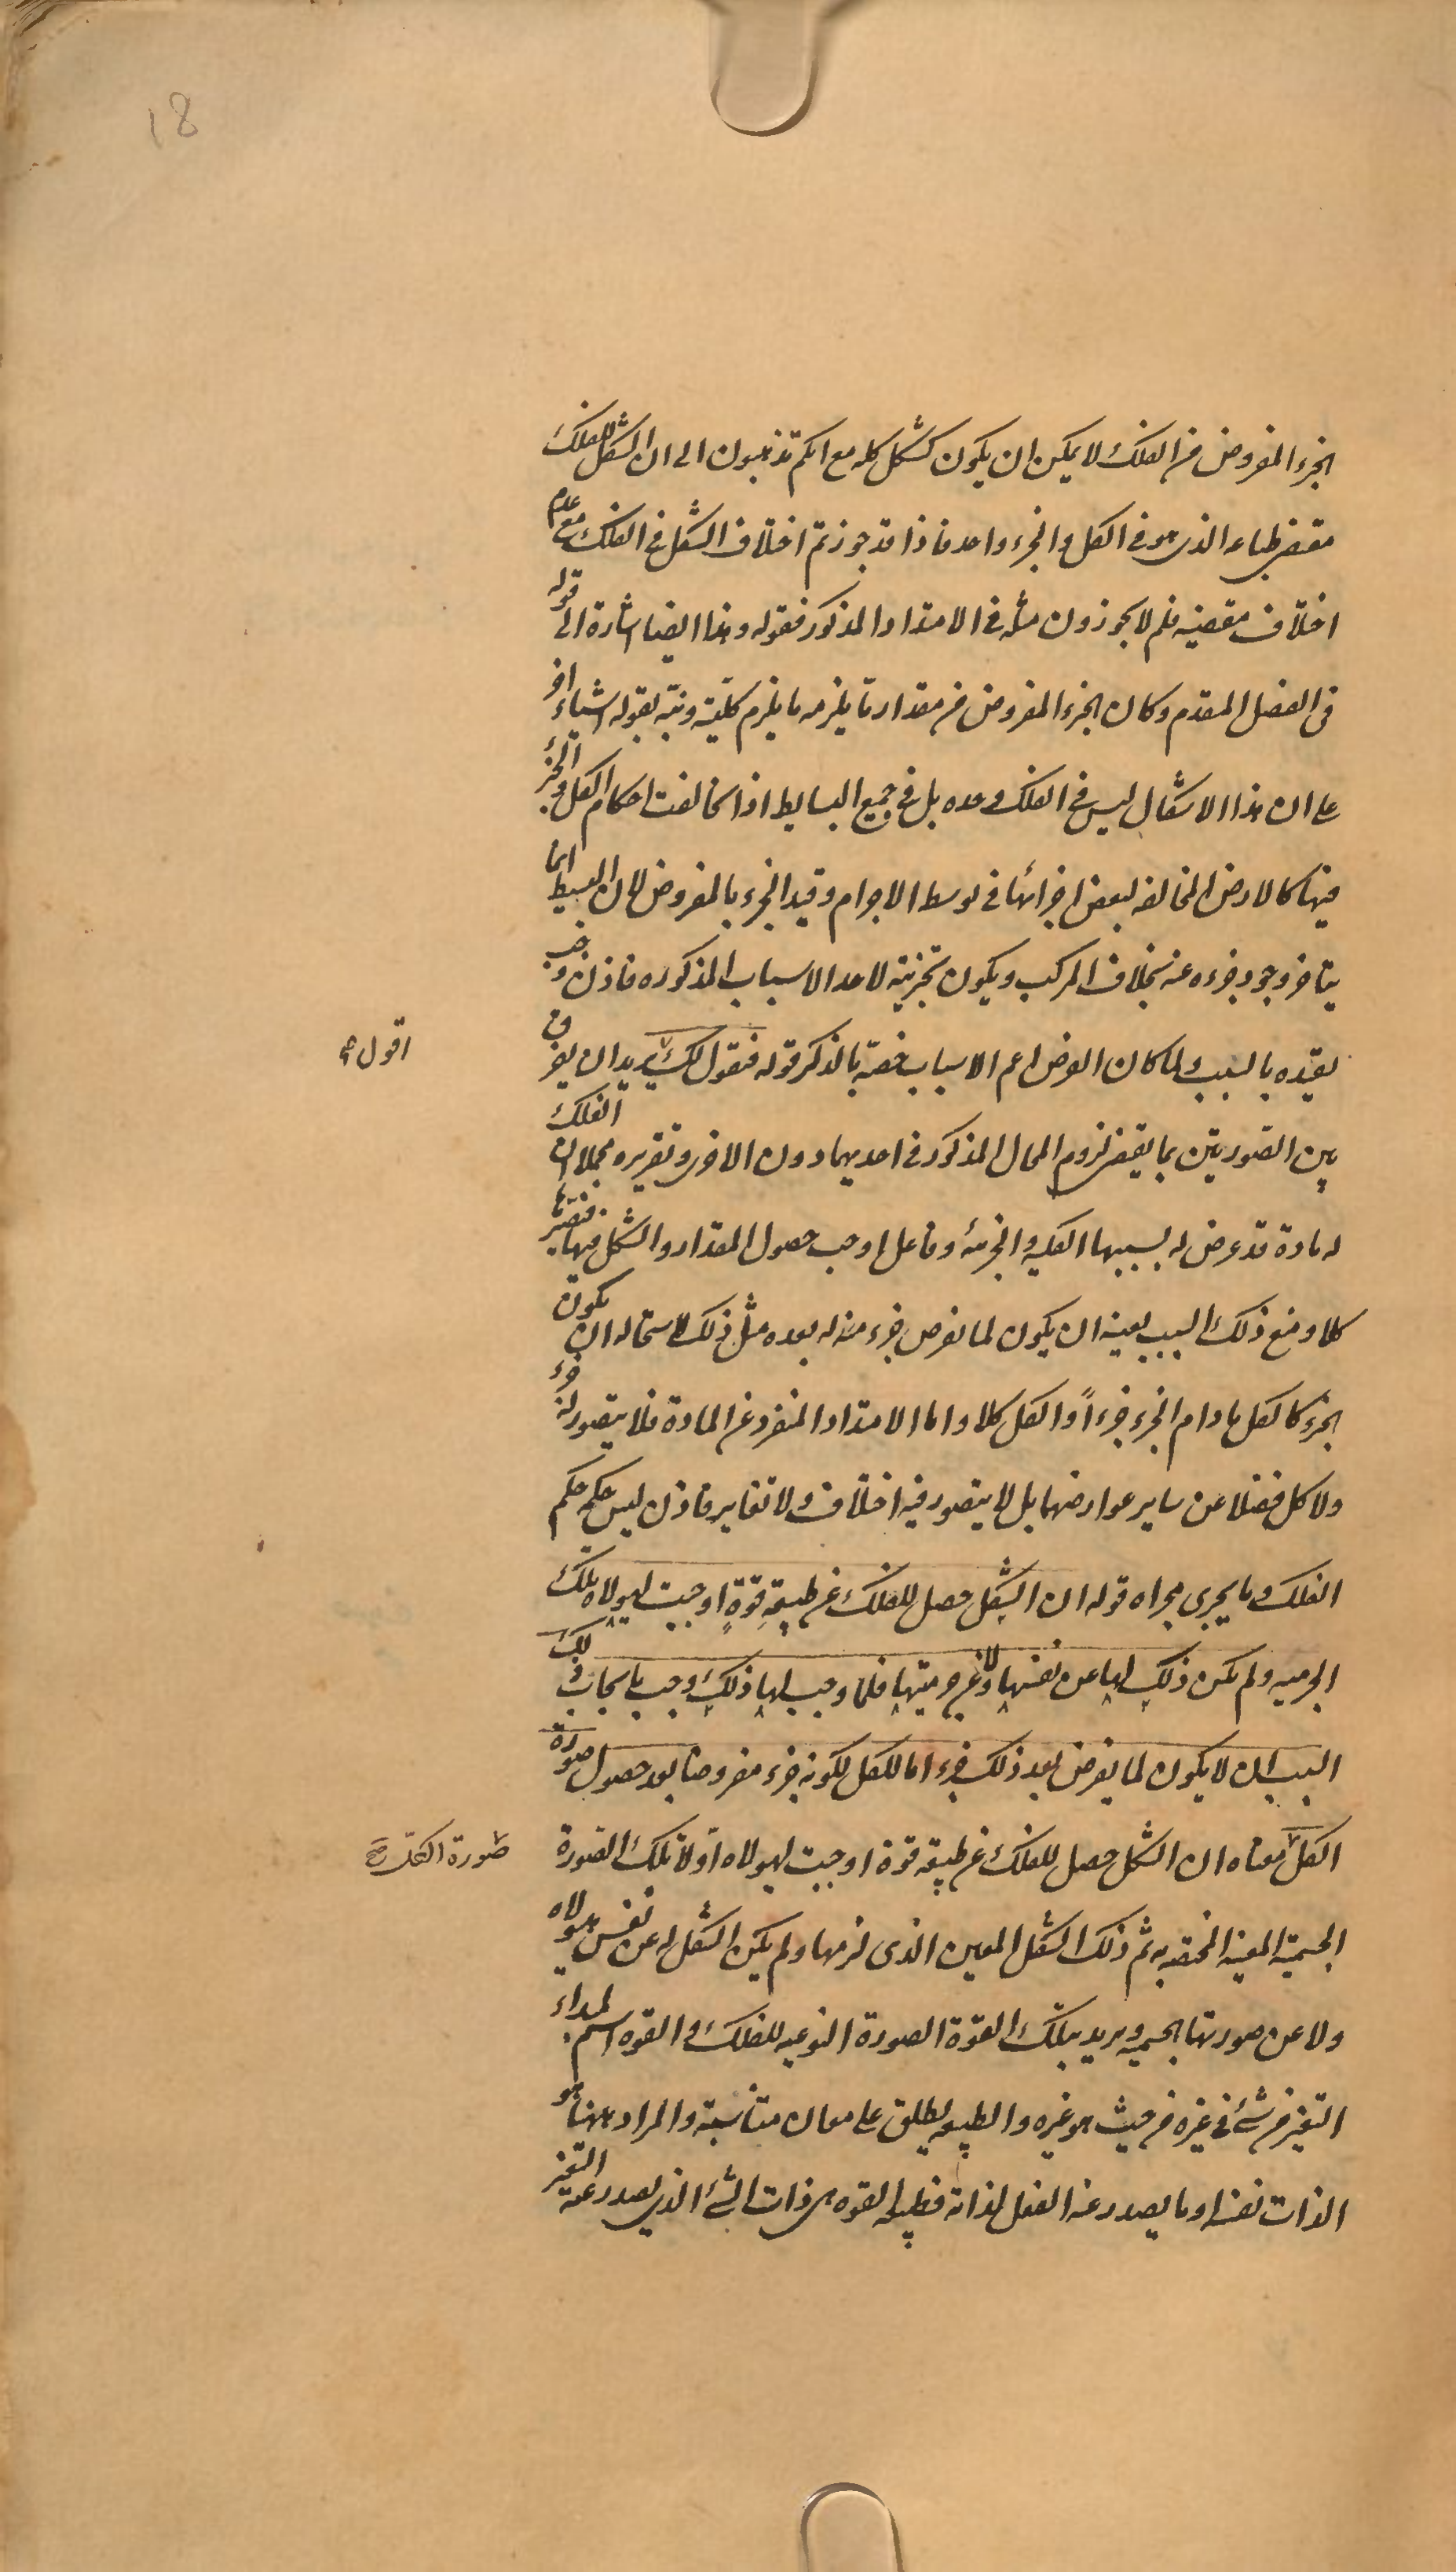 18
الجزء المفروض من الفلك لا يمكن ان يكون كشكل كله مع انكم تذهبون الى ان الشكل للفلك
مقتضى طباعه الذى هو فى الكل و الجزء واحد فاذا قد جوزتم اختلاف الشكل فى الفلك مع عدم
اختلاف مقتضيه فلم لا تجوزون مثله فى الامتداد المذكور فقوله وهذا ايضا اشارة الى قوله
فى الفصل المقدم وكان الجزء المفروض من مقدار ما يلزمه ما يلزم كليته ونبه بقوله اشياء اخر
على ان هذا الاشكال ليس فى الفلك وحده بل فى جميع البسايط اذا تخالفت احكام الكل و الجزء
فيها كالارض المخالفه لبعض اجزائها فى توسط الاجرام وقيد الجزء بالمفروض لان البسيط انما
يتاخر وجود جزءه عنه بخلاف المركب ويكون تجزئته لاحد الاسباب المذكوره فاذن وجب
تقيده بالسبب ولما كان الفرض اعم الاسباب خصه بالذكر قوله فنقول لك يريد ان يفرق
اقول صح
بين الصورتين بما يقتضى لزوم المحال المذكور فى احديهما دون الاخرى وتقريره مجملا ان الفلك
له مادة قد عرض له بسببها الكليه و الجزئيه وفاعل اوجب حصول المقدار و الشكل فيها فتصيرها
كلا ومنع ذلك السبب بعينه ان يكون لما نفرض جزء منه له بعده مثل ذلك لاستحاله ان يكون
الجزء كالكل ما دام الجزء جزءاً و الكل كلا و اما الامتداد المنفرد عن المادة فلا يتصور له جزء
ولا كل فضلا عن ساير عوارضهما بل لا يتصور فيه اختلاف ولا تغاير فاذن ليس حكمه حكم
الفلك وما يجرى مجراه قوله ان الشكل حصل للفلك عن طبيعة قوة اوجبت لهيولاه تلك
الجرميه ولم يكن ذلك لها عن نفسها ولا عن جرميتها فلما وجب لها ذلك وجب بايجاب ذلك
السبب ان لا يكون لما يفرض بعد ذلك جزء اما للكل لكونه جزء مفروضا بعد حصول صورة
الكل معناه ان الشكل حصل للفلك عن طبيعة قوة اوجبت لهيولاه اولا تلك الصورة
صورة الكل صح
الجسمية المعينة المختصه به ثم ذلك الشكل المعين الذى لزمها ولم يكن الشكل له عن نفس هيولاه
ولا عن صورتها الجسميه ويريد بتلك القوة الصورة النوعيه للفلك و القوه اسم لمبداء
التغير من شئ فى غيره من حيث هو غيره و الطبيعه يطلق على معان متناسبة و المراد ههنا هو
الذات نفسه او ما يصدر عنه الفعل لذاته فطبيعه القوه هى ذات الشئ الذى يصدر عنه التغير